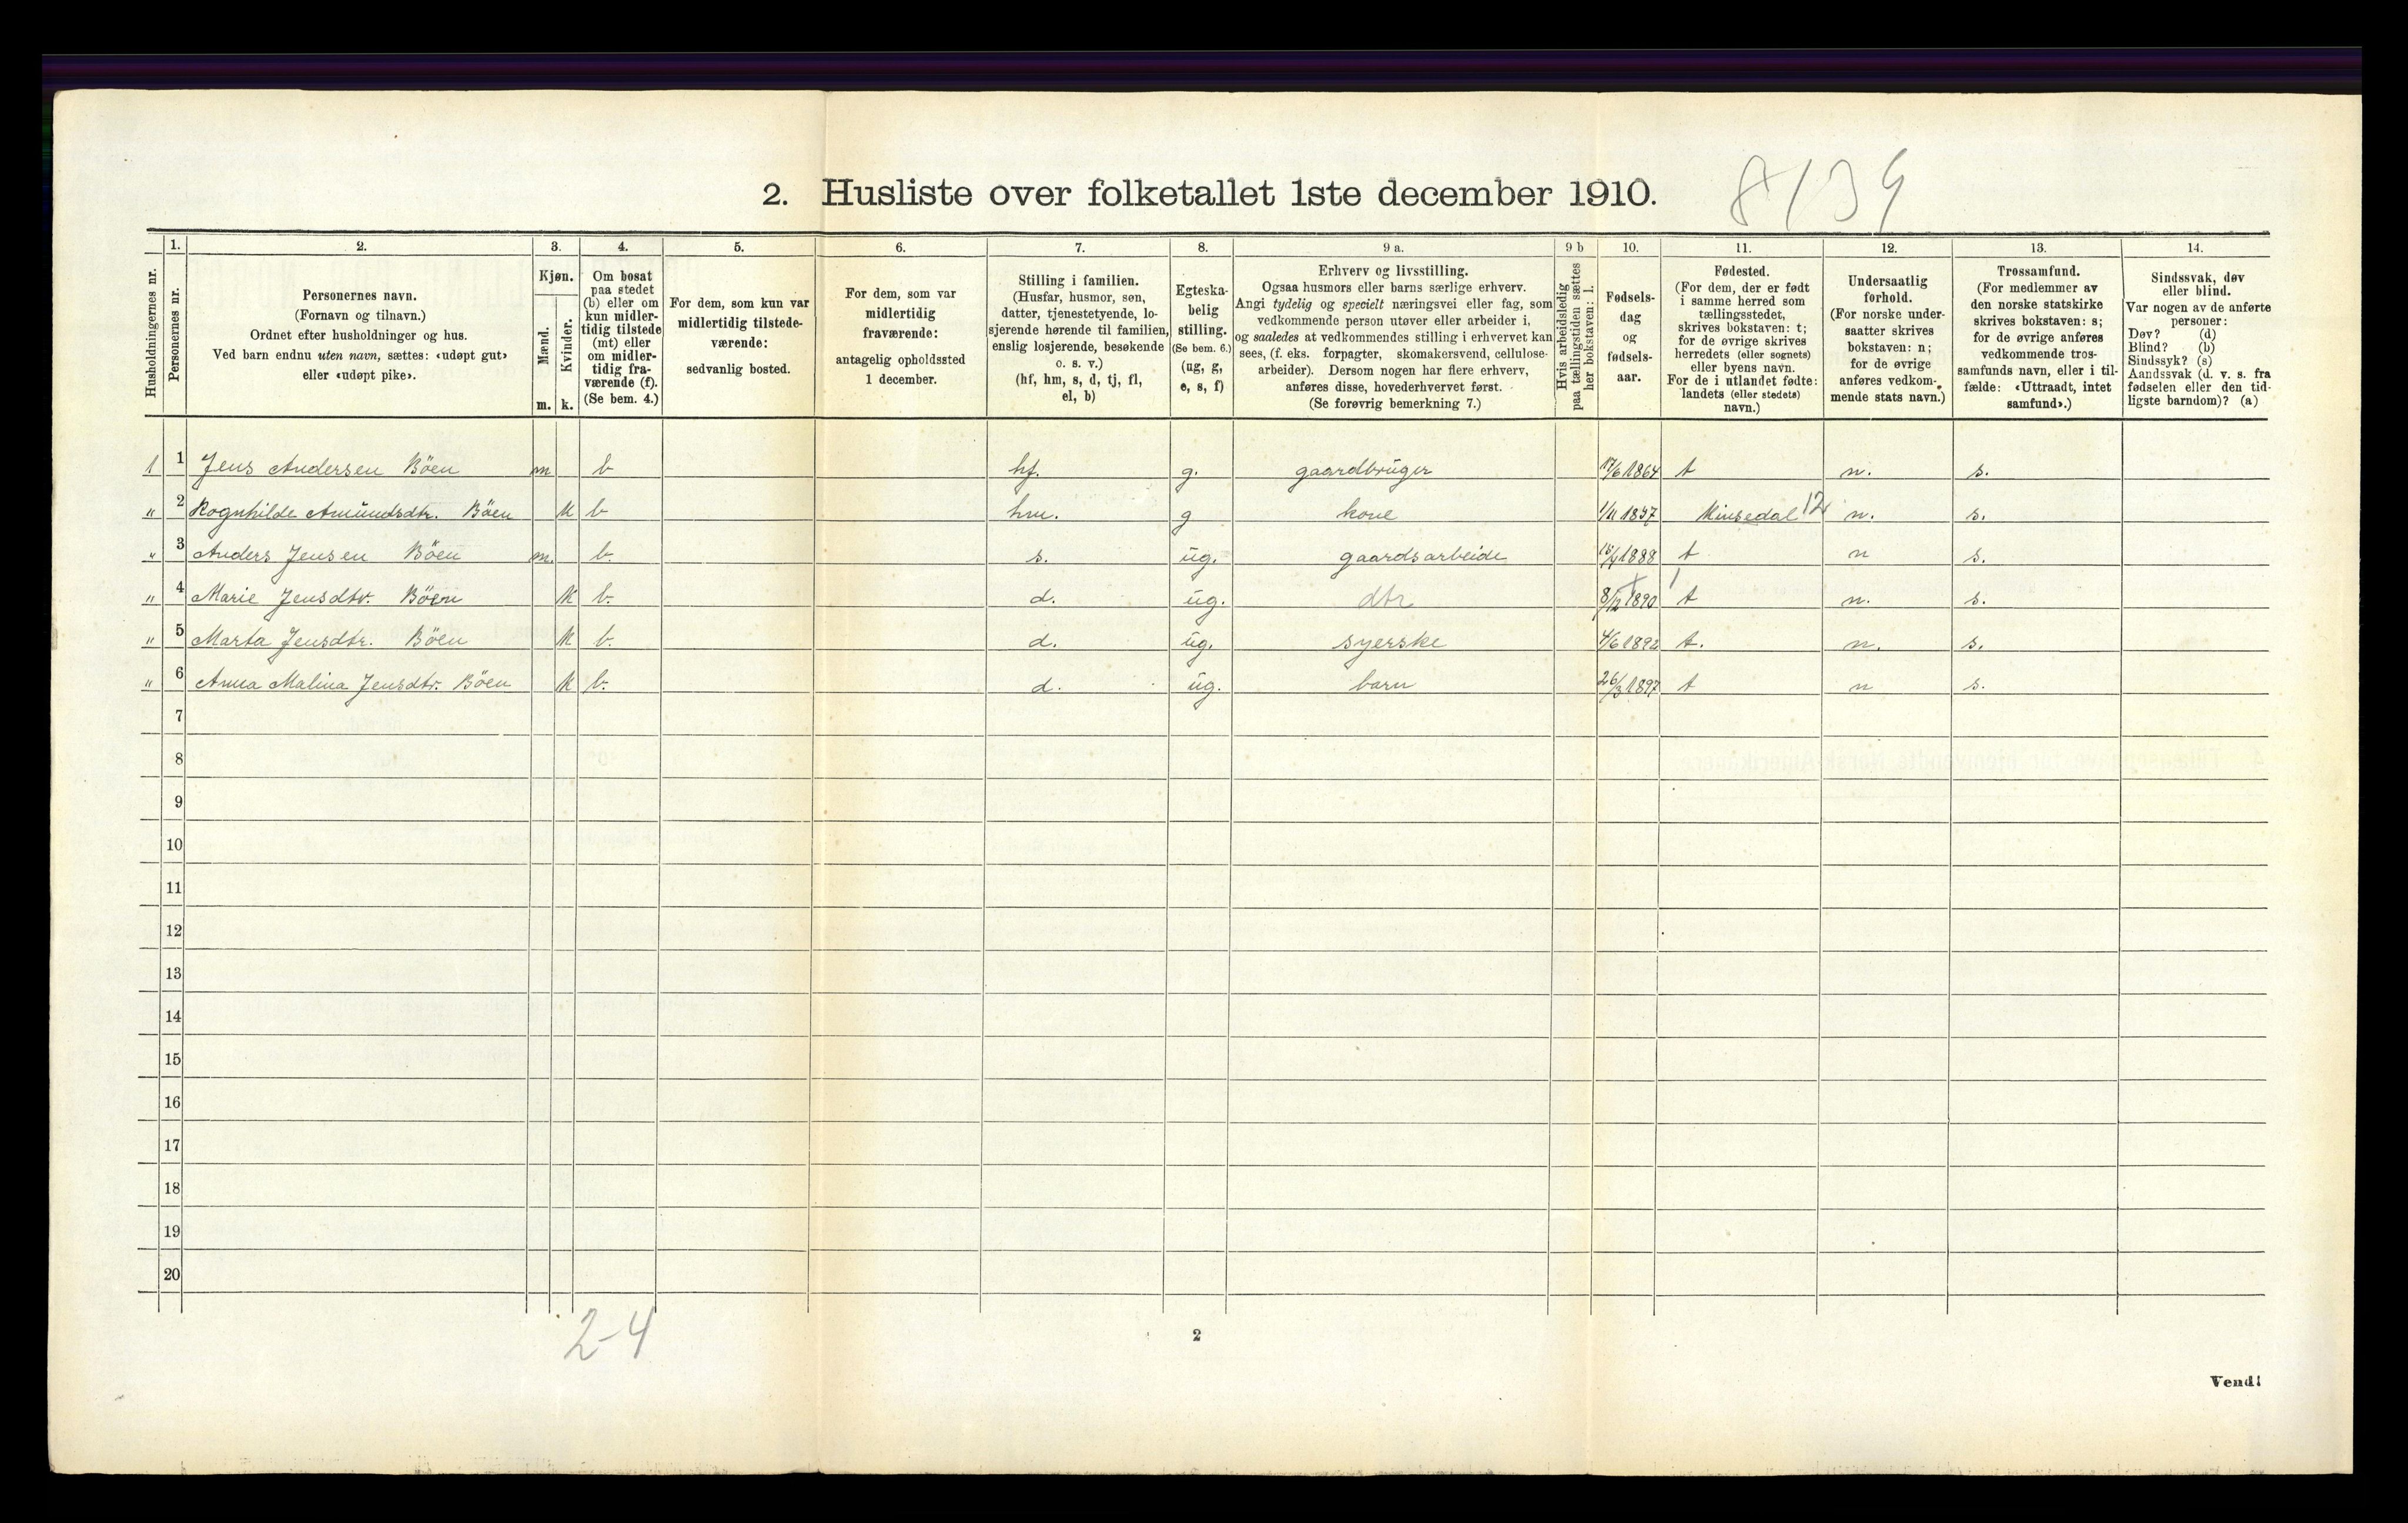 2. Husliste over folketallet 1ste december 1910. 8139
1. 2. 3. 4. 5. 6. 7. 8. 9 a. 9 b 10. 11. 12. 13. 14.
Husholdningernes nr.
Personernes nr.
Personernes navn.
(Fornavn og tilnavn.)
Ordnet efter husholdninger og hus.
Ved barn endnu uten navn, sættes: «udøpt gut»
eller «udøpt pike».
Kjøn.
Mænd.
Kvinder.
m. k.
Om bosat
paa stedet
(b) eller om
kun midler-
tidig tilstede
(mt) eller
om midler-
tidig fra-
værende (f).
(Se bem. 4.)
For dem, som kun var
midlertidig tilstede-
værende:
sedvanlig bosted.
For dem, som var
midlertidig
fraværende:
antagelig opholdssted
1 december.
Stilling i familien.
(Husfar, husmor, søn,
datter, tjenestetyende, lo-
sjerende hørende til familien,
enslig losjerende, besøkende
o. s. v.)
(hf, hm, s, d, tj, fl,
el, b)
Egteska-
belig
stilling.
(Se bem. 6.)
(ug, g,
e, s, f)
Erhverv og livsstilling.
Ogsaa husmors eller barns særlige erhverv.
Angi tydelig og specielt næringsvei eller fag, som
vedkommende person utøver eller arbeider i,
og saaledes at vedkommendes stilling i erhvervet kan
sees, (f. eks. forpagter, skomakersvend, cellulose-
arbeider). Dersom nogen har flere erhverv,
anføres disse, hovederhvervet først.
(Se forøvrig bemerkning 7.)
Hvis arbeidsledig
paa tællingstiden sættes
her bokstaven: l.
Fødsels-
dag
og
fødsels-
aar.
Fødested.
(For dem, der er født
i samme herred som
tællingsstedet,
skrives bokstaven: t;
for de øvrige skrives
herredets (eller sognets)
eller byens navn.
For de i utlandet fødte:
landets (eller stedets)
navn.)
Undersaatlig
forhold.
(For norske under-
saatter skrives
bokstaven: n;
for de øvrige
anføres vedkom-
mende stats navn.)
Trossamfund.
(For medlemmer av
den norske statskirke
skrives bokstaven: s;
for de øvrige anføres
vedkommende tros-
samfunds navn, eller i til-
fælde: «Uttraadt, intet
samfund».)
Sindssvak, døv
eller blind.
Var nogen av de anførte
personer:
Døv? (d)
Blind? (b)
Sindssyk? (s)
Aandssvak (d. v. s. fra
fødselen eller den tid-
ligste barndom)? (a)
1 1 Jens Andersen Böen m b hf. g. gaardbrüger 17/6 1864 t n. s.
" 2 Rognhilde Amündsdtr. Böen k b hm. g kone 1/11 1857 Hinsedal 12 n. s.
" 3 Anders Jensen Böen m. b. s. üg. gaardsarbeide 1888 t n s.
" 4 Marie Jensdtr. Böen k b. d. üg. dtr 8/12 1890 t n. s.
" 5 Marta Jensdtr. Böen k b. d. üg. syerske 4/6 1892 t. n. s.
" 6 Anna Malina Jensdtr. Böen k b. d. üg. barn 26/3 1897 t n s.
7
8
9
10
11
12
13
14
15
16
17
18
19
20
2-4
2
Vend!